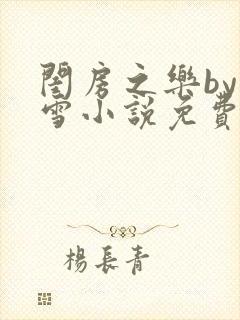 閨房之樂by
雪小說免費
楊長青